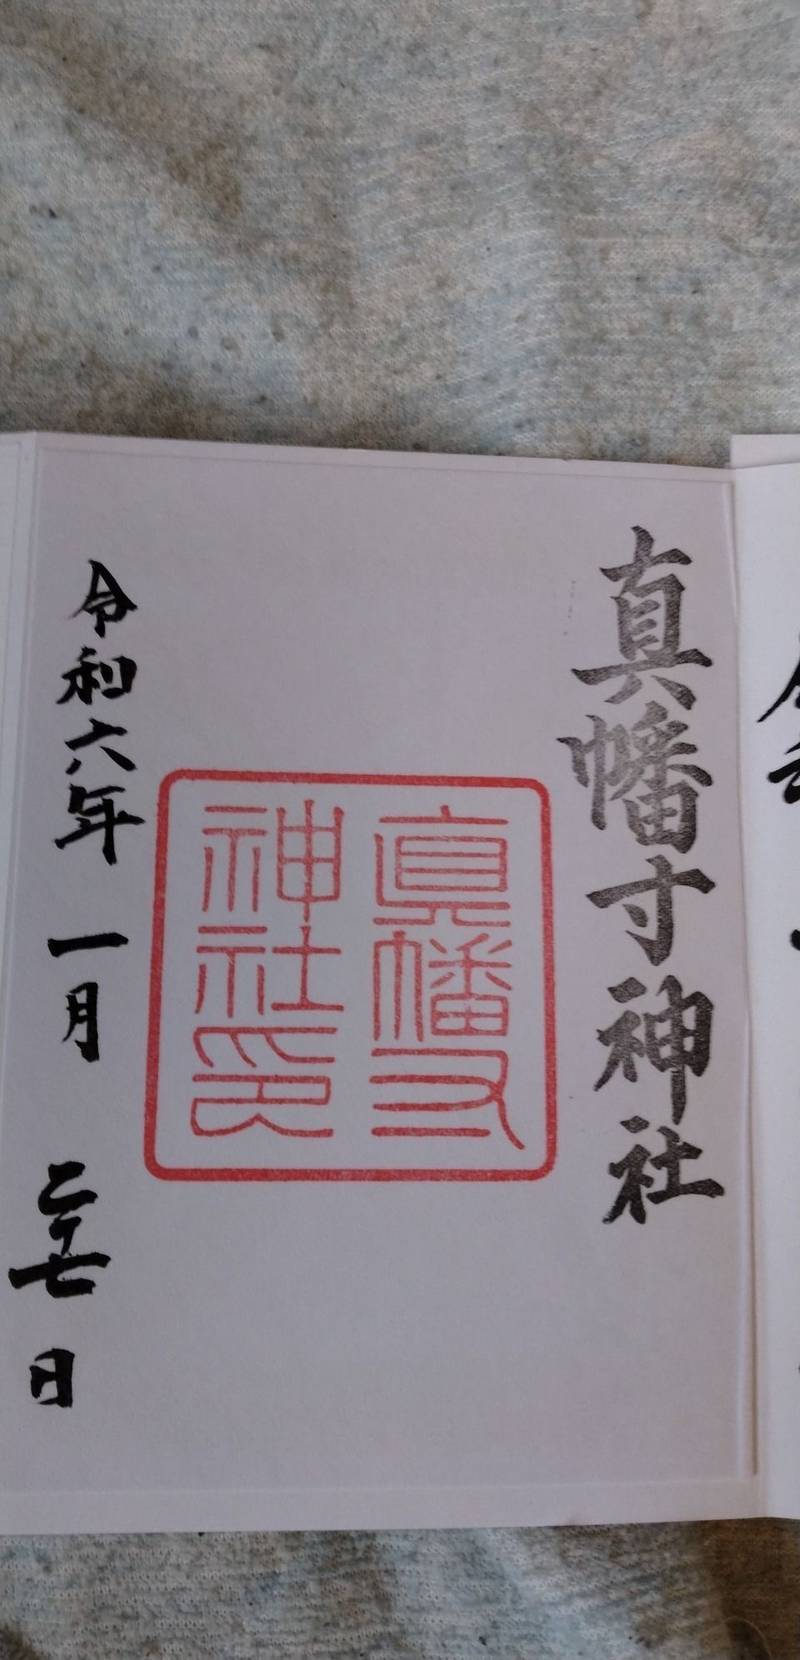 真幡寸神社
真幡寸
神社印
令和六年 一月 二十七日